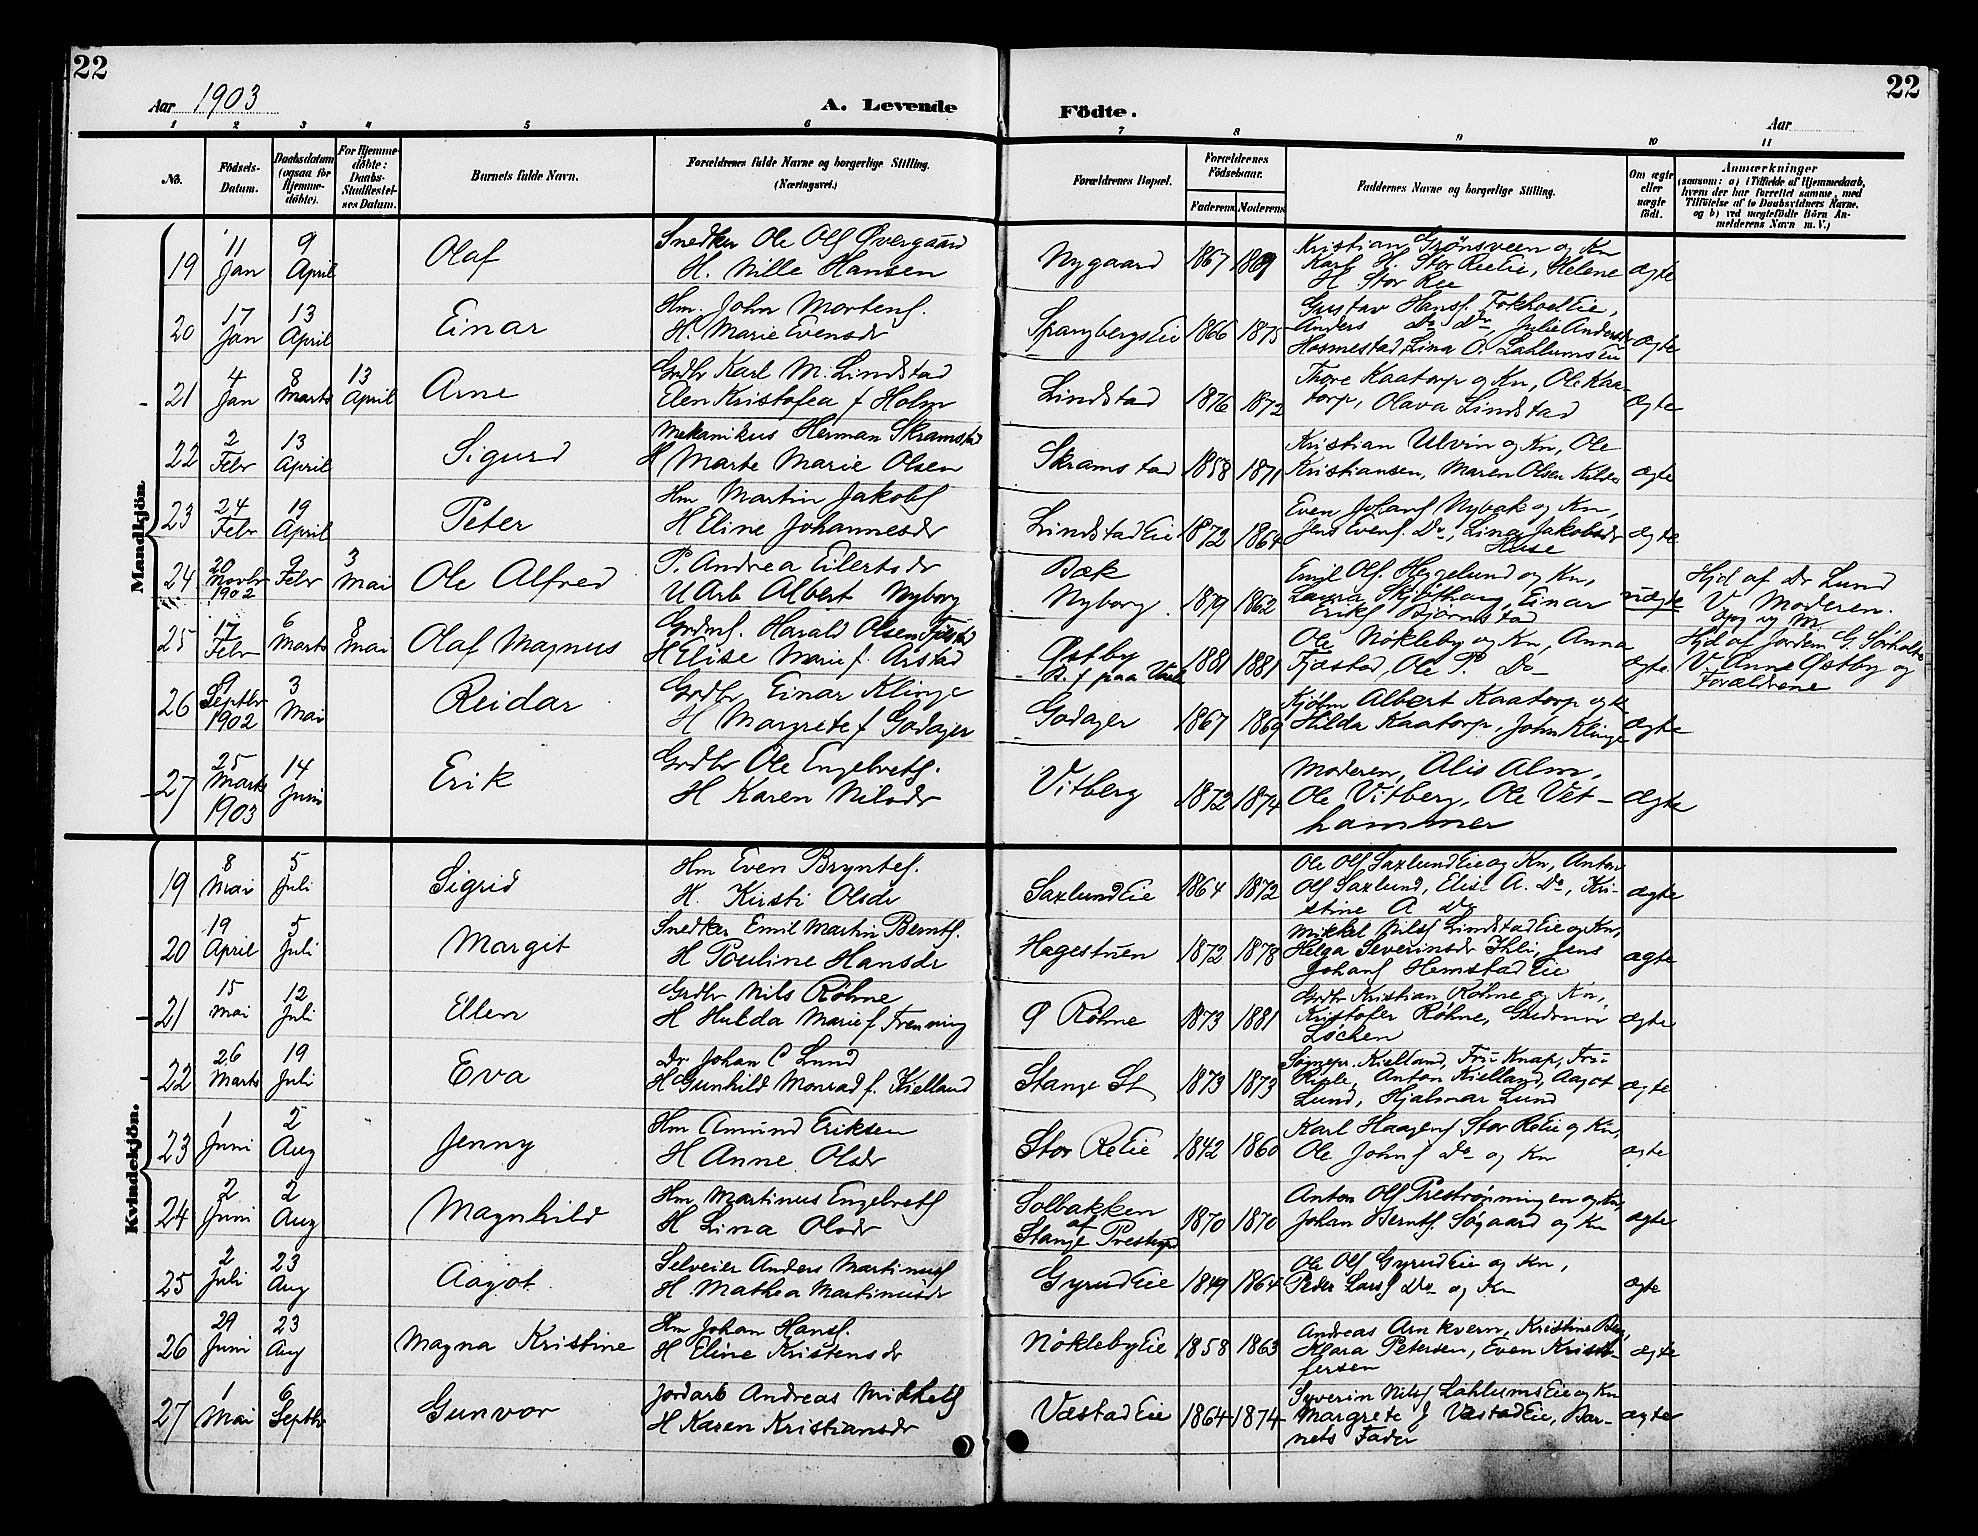 22
22
Aar 1903
A. Levende
Födte.
Aar
1 2 3 4 5 6 7 8 9 10 11
No.
Födsels-Datum.
Daabsdatum (ogsaa for Hjemmedöbte).
For Hjemmedöbte: Daabs-Stadfæstelses Datum.
Barnets fulde Navn.
Forældrenes fulde Navne og borgerlige Stilling. (Næringsvei.)
Forældrenes Bopæl.
Forældrenes Födselsaar.
Faderens Moderens
Faddernes Navne og borgerlige Stilling.
Om ægte eller uægte födt.
Anmærkninger
(saasom: a) i Tilfælde af Hjemmedaab, hvem der har forrettet samme, med Tilföielse af to Daabsvidners Navne, og b) ved uægtefödte Börn Anmelderens Navn m. V.)
Mandkjön.
19 11 Jan 9 April Olaf
Snedker Ole Olf Øvergaard
H. Nille Hansen
Nygaard 1867 1869
Kristian Grönsveen og Kn
Karl H. Stor ReeEie, Helene
H Stor Ree
ægte
20 17 Jan 13 April Einar
Hm. John Mortens.
H. Marie Evensdr
SpangbergsEie 1866 1875
Gustav Hansf. Eie,
Anders Do Do, Julie Andersdr
Hosmestad, Lina O. LahlumsEie
ægte
21 4 Jan 8 Marts 13 April Arne
Grdbr Karl M. Lindstad
Elen Kristofea f Holm
Lindstad 1876 1872
Thore Kaatorp og Kn, Ole Kaa-
torp, Olava Lindstad
ægte
22 2 Febr 13 April Sigurd
Mekanikus Herman Skramstad
H Marte Marie Olsen
Skramstad 1858 1871
Kristian Ulvin og Kn, Ole
Kristiansen, Maren Olsen
ægte
23 24 Febr 19 April Peter
Hm Martin Jakobs
H Eline Johannesdr
LindstadEie 1872 1864
Even Johans Nybak og Kn,
Jens Evens. Do, Lina Jakobsdr
Huse
ægte
24 20 Novbr 1902 9 Febr 3 Mai Ole Alfred
P. Andrea Eilertsdr
U Arb Albert Nyborg
Bæk
Nyborg 1879 1862
Emil Olf. Heggelund og Kn,
Laura Skjøthaug, Einar
Eriks Bjørnstad
uægte
Hjd af Dr Lund
V. Moderen.
25 17 Febr 6 Marts 8 Mai Olaf Magnus
Grdmf. Harald Olsen Fjæstad
H Elise Marie f. Arstad
Østby
1881 1881
Ole Nökleby og Kn, Anna
Fjæstad, Ole P. Do
ægte
Hjd af Jordem G. Sørholte
V. Anne Østby og
Forældrene
26 9 Septbr 1902 3 Mai Reidar
Grdbr Einar Klinge
H Margrete f Godager
Godager 1867 1869
Kjøbm Albert Kaatorp og k
Hilda Kaatorp, John Klinge
ægte
27 25 Marts 1903 14 Juni Erik
Grdbr Ole Engebrets.
H Karen Nilsdr
Vitberg 1872 1874
Moderen, Alis Alm,
Ole Vitberg, Ole Vet-
hammer
ægte
Kvindekjön.
19 8 Mai 5 Juli Sigrid
Hm Even Bryntes.
H. Kirsti Olsdr
SaxlundEie 1864 1872
Ole Olf SaxlundEie og Kn, Anton
Olf Saxlund, Elise A. Do, Kri-
stine A Do
ægte
20 19 April 5 Juli Margit
Snedker Emil Martin Berntf.
H Pouline Hansdr
Hagestuen 1872 1878
Mikkel Nilsf LindstadEie og Kn,
Helga Severinsdr Ihli, Jens
Johanf HemstadEie
ægte
21 15 Mai 12 Juli Ellen
Grdbr Nils Røhne
H Hulda Marie f Frenning
Ø Røhne 1873 1881
Grdbr Kristian Røhne og Kn,
Kristofer Røhne, Gudrun
Løchen
ægte
22 26 Marts 19 Juli Eva
Dr Johan C Lund
H Gunhild Monrad f. Kielland
Stange St 1873 1873
Sognepr. Kielland, Fru Knap, Fru
Anton Kielland, Aagot
Lund, Hjalmar Lund
ægte
23 1 Juni 2 Aug Jenny
Hm Amund Eriksen
H Anne Olsdr
Stor ReEie 1842 1860
Karl Haagens Stor ReEie og Kn,
Ole Johns Do og Kn
ægte
24 2 Juni 2 Aug Magnhild
Hm Martinus Engebrets
H Lina Olsdr
Solbakken
af
Stange Prestegd 1870 1870
Anton Olf Prestrønningen og Kn,
Johan Berntf. Søgaard og Kn
ægte
25 2 Juli 23 Aug Aagot
Selveier Anders Martinusf
H. Mathea Martinusdr
GyrudEie 1849 1864
Ole Olf GyrudEie og Kn,
Peder Larsf Do og Kn
ægte
26 29 Juni 23 Aug Magna Kristine
Hm Johan Hansf.
H Eline Kristensdr
NöklebyEie 1858 1863
Andreas Arnkvern, Kristine Berg,
Klara Petersen, Even Kristo-
fersen
ægte
27 1 Mai 6 Septbr Gunvor
Jordarb Andreas Mikkels
H Karen Kristiansdr
VæstadEie 1864 1874
Syverin Nilsf LahlumsEie og Kn
Margrete J VæstadEie, Bar-
nets Fader
ægte